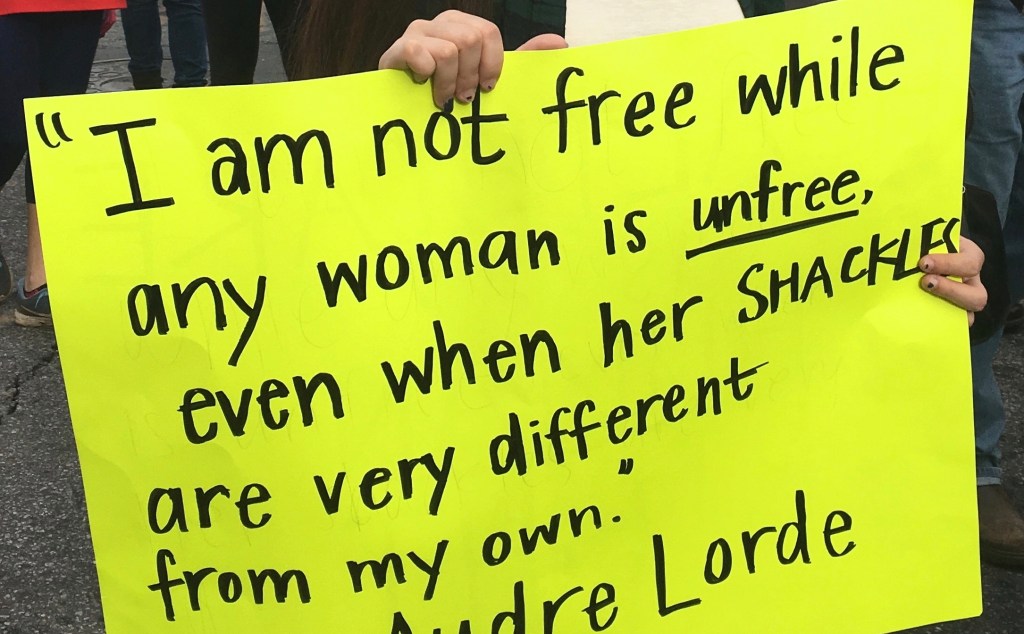 "I am not free while
any woman is unfree,
even when her SHACKLES
are very different
from my own."
Audre Lorde